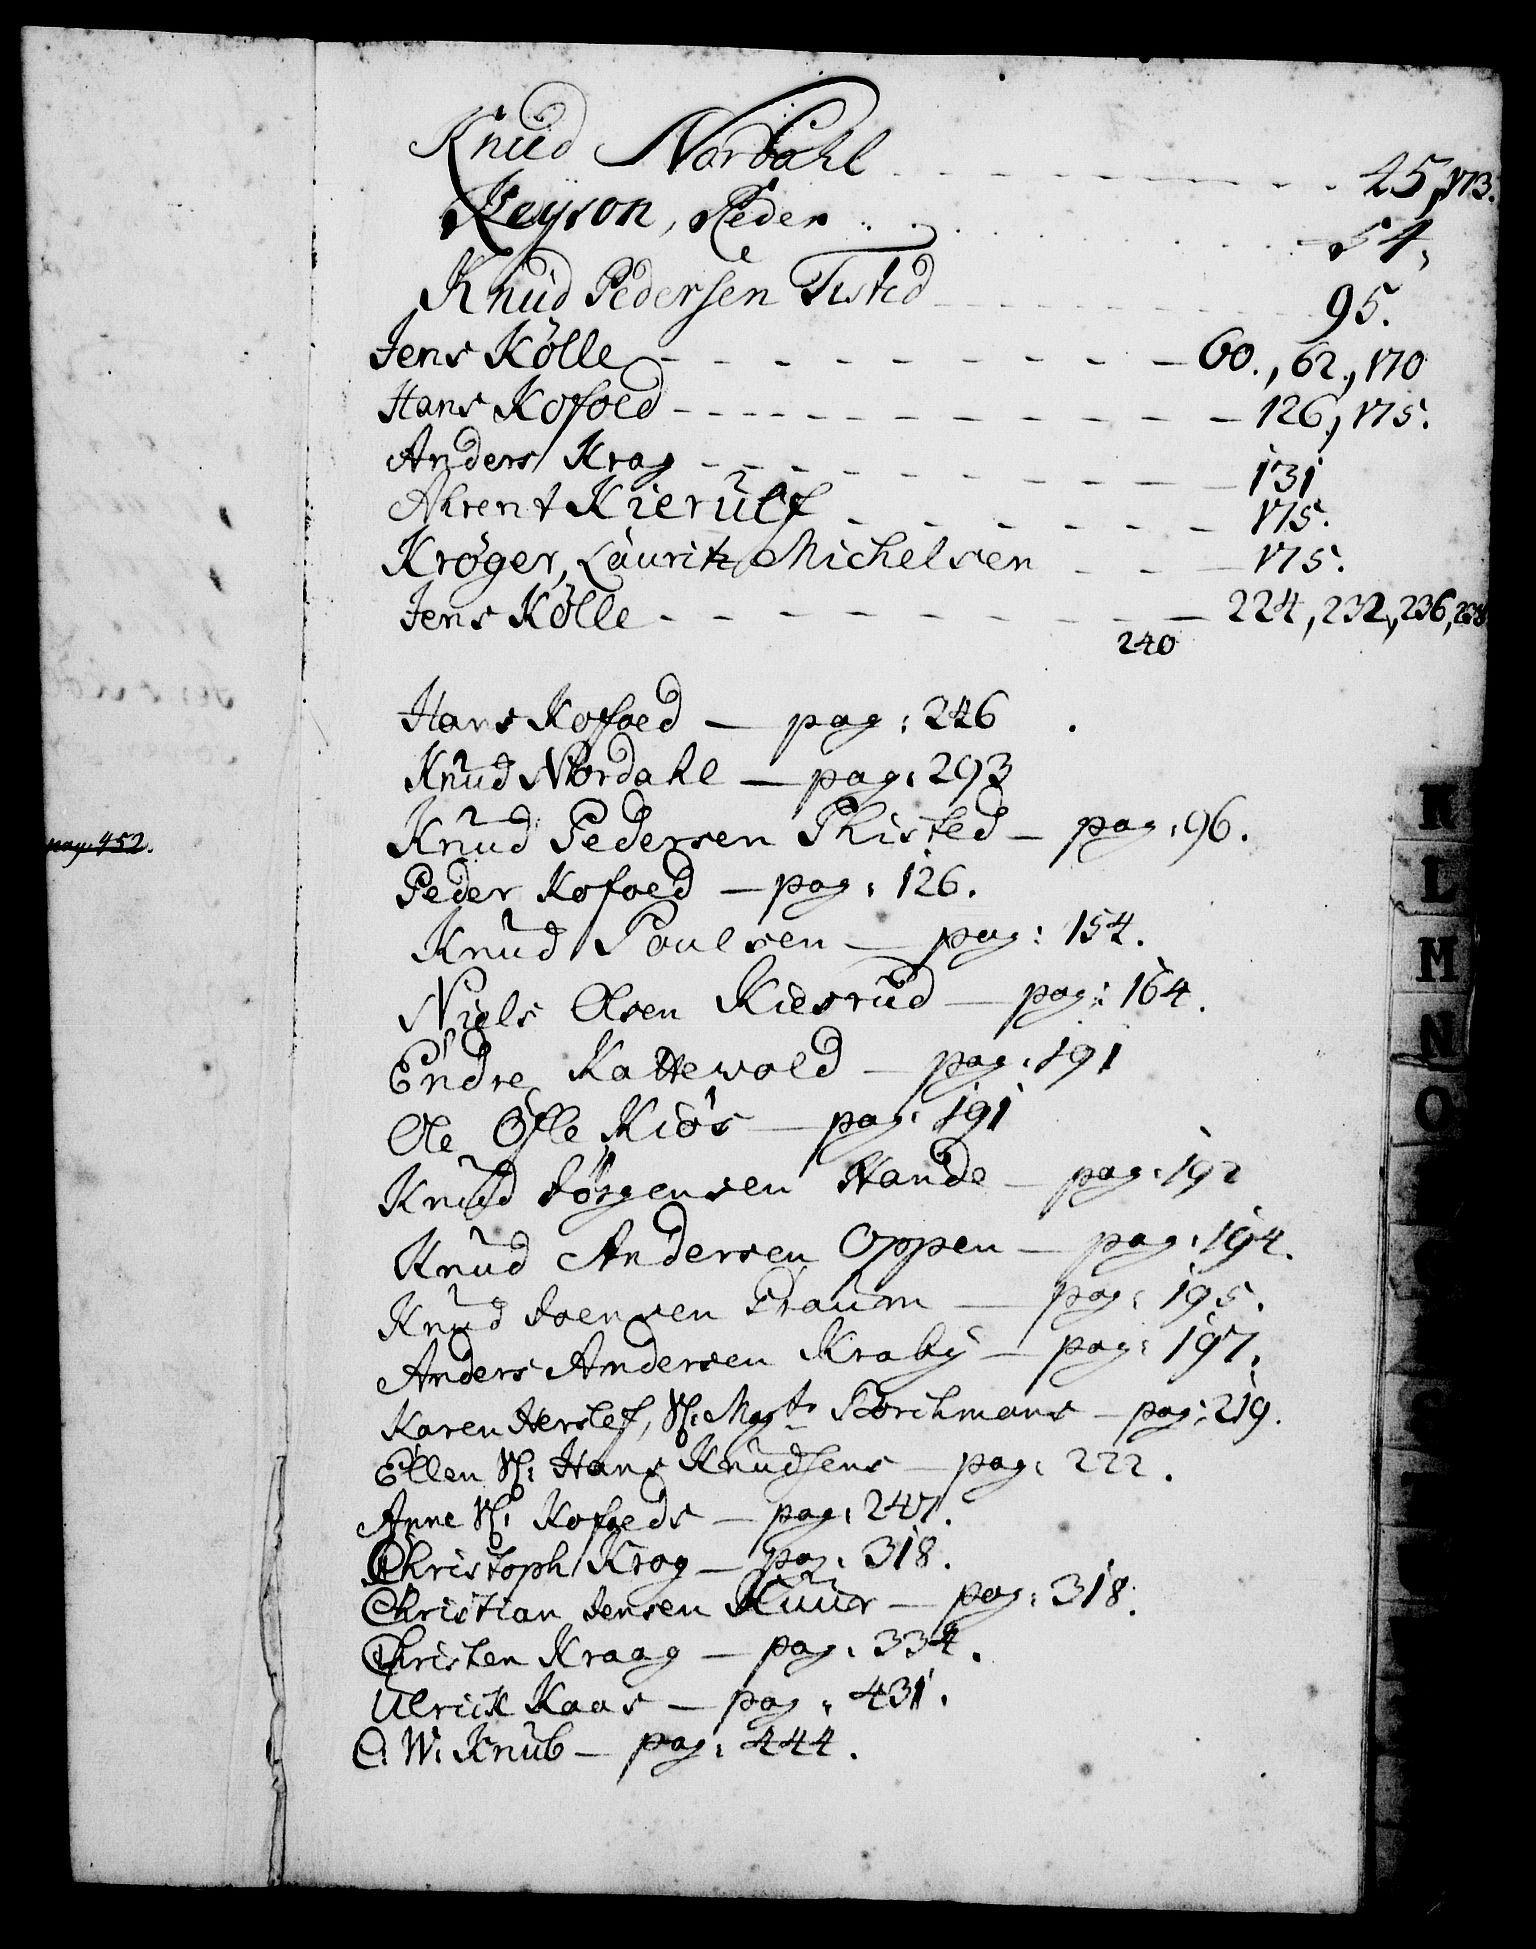 Knud Nordahl - - - - - - - - 45, 173.
Keyson, Peder . . . . . . . . 54,
Knud Pedersen Tisted - - - - - - 95.
Jens Kölle - - - - - - - - - 60., 62., 170
Hans Kofoed - - - - - - - - - 126, 175.
Anders Krag - - - - - - - - 131
Ahrent Kierulf - - - - - - 175.
Kröger, Lauritz Michelsen - - - 175.
Jens Kölle - - - - - - - - - 224, 232, 236, 238
240
Hans Kofoed — pag: 246
Knud Nordahl — pag: 293
Knud Pedersen Thisted — pag: 96.
pag. 452.
Peder Kofoed — pag: 126.
Knud Poulsen — pag: 154.
Niels Olsen Kiesrud — pag: 164.
Endre Kattevold — pag: 191
Ole Ofle Kiös — pag: 191
Knud Jörgensen Hande — pag: 192
Knud Andersen Oppen — pag: 194.
Knud Joensen Praum — pag: 195.
Anders Andersen Kraby — pag: 197.
Karen Herslef, Sl: Magtr Borchmans — pag: 219.
Ellen Sl: Hans Knudsens — pag: 222.
Anne Sl: Kofoeds — pag: 247.
Christoph Krog — pag: 318.
Christian Jensen Kuur — pag: 318.
Christen Kraag — pag: 334.
Ulrick Kaas — pag: 431.
C. W. Knub — pag: 444.
K
L
M
N
O